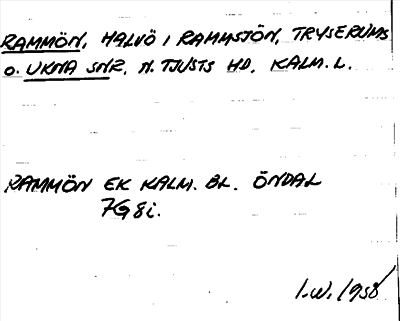 RAMMÖN, HALVÖ I RAMMSJÖN, TRYSERUMS
O. UKNA SNR, N. TJUSTS HD, KALM. L.
RAMMÖN EK KALM. BL. ÖNDAL
7G 8i.
I.W. 1958